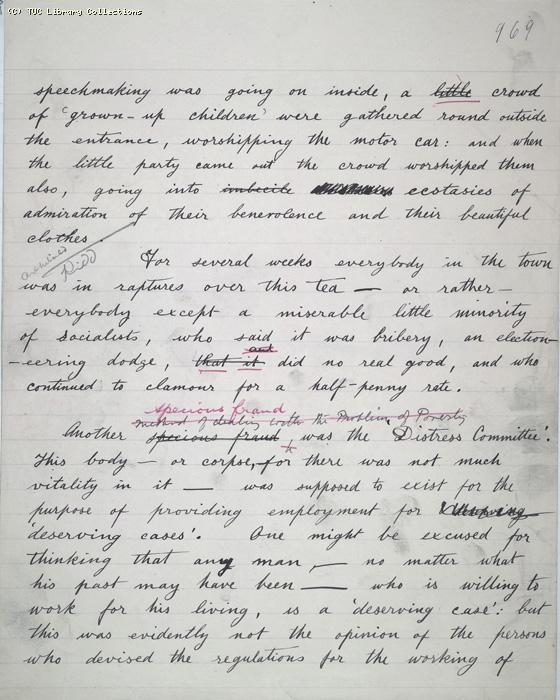 (C) TUC Library Collections
969
speechmaking was going on inside, a little crowd
of 'grown-up children' were gathered round outside
the entrance, worshipping the motor car: and when
the little party came out the crowd worshipped them
also, going into imbecile ecstasies of
admiration of their benevolence and their beautiful
clothes.
For several weeks everybody in the town
was in raptures over this tea — or rather —
everybody except a miserable little minority
of Socialists, who said it was bribery, an election-
-eering dodge, that it did no real good, and who
continued to clamour for a half-penny rate.
specious fraud
method of dealing with the Problem of Poverty
Another specious fraud was the 'Distress Committee'.
This body — or corpse, for there was not much
vitality in it — was supposed to exist for the
purpose of providing employment for
'deserving cases'. One might be excused for
thinking that any man, — no matter what
his past may have been — who is willing to
work for his living, is a 'deserving case': but
this was evidently not the opinion of the persons
who devised the regulations for the working of